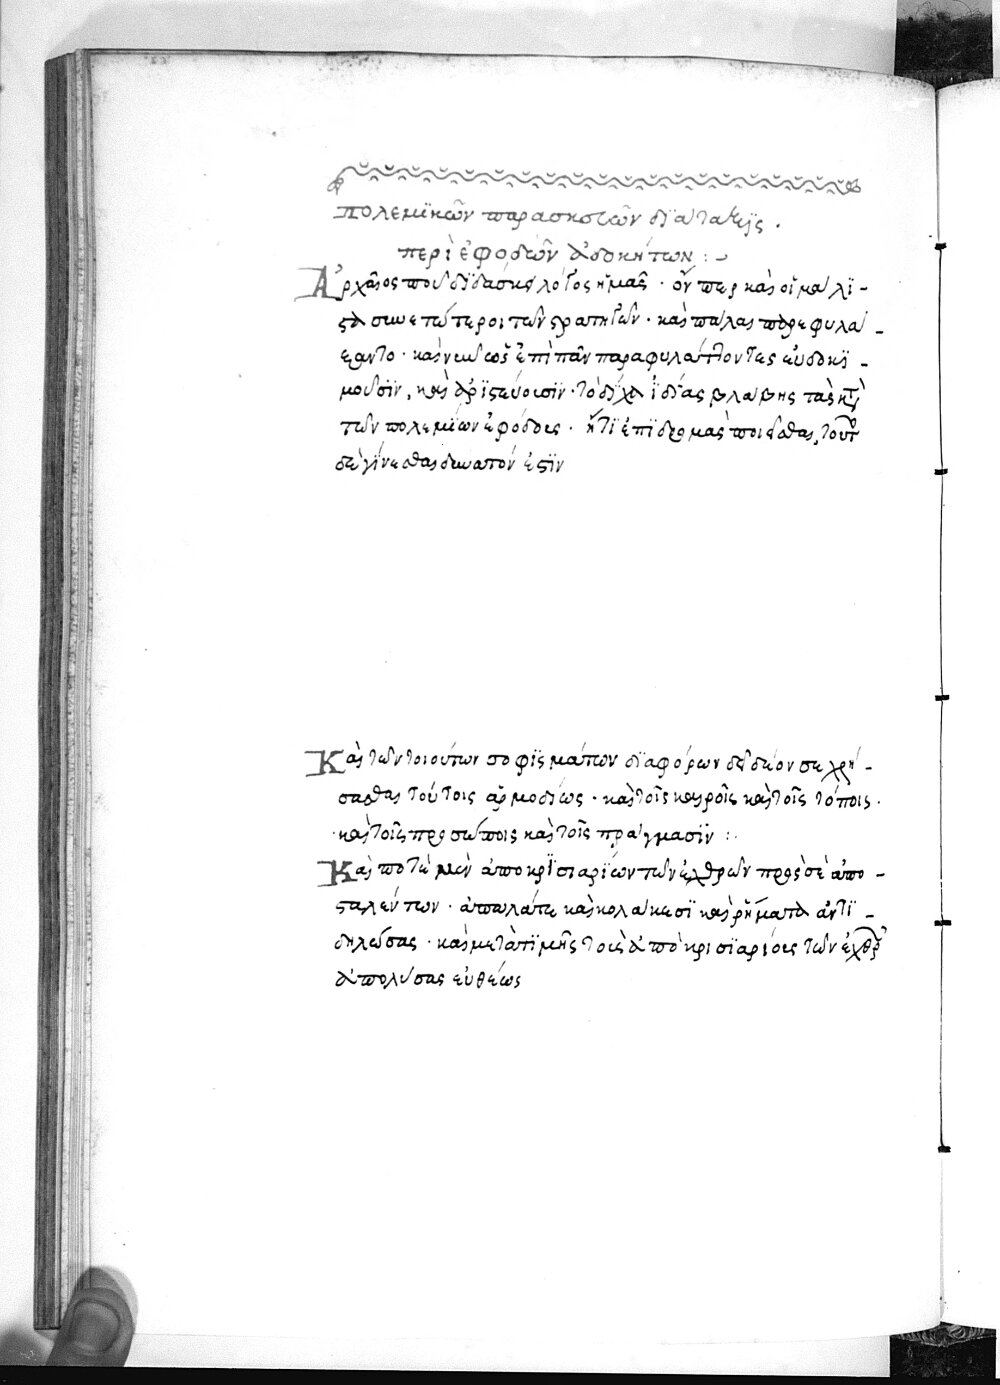 πολεμϊκῶν παρασκευῶν δϊατάξεις .
περὶ ἐφόδων ἀδοκήτων :~
Ἀρχαῖος που διδάσκει λόγος ἡμᾶς · ὅν περ καὶ οἱ μάλϊ-
στα συνετώτεροι τῶν στρατηγῶν · καὶ πάλαι παρεφυλά-
ξαντο · καὶ νῦν ὡς ἐπὶ πᾶν παραφυλάττοντες εὐδοκϊ-
μοῦσϊν , καὶ ἀρϊστεύουσϊν · τὸ δίχα ἰδίας βλάβης τὰς κατὰ
τῶν πολεμίων ἐφόδους · ἤτϊ ἐπϊδρομὰς ποιεῖσθαι , τοῦτο
δὲ γίνεσθαι δυνατόν ἐστϊν
Καὶ τῶν τοιούτων σοφϊσμάτων διαφόρων δεῖ δέον σε χρή-
σασθαι τούτοις ἁρμοδίως · καὶ τοῖς καιροῖς καὶ τοῖς τόποις ·
καὶ τοῖς προσώποις καὶ τοῖς πράγμασϊν :
Καὶ ποτὲ μὲν ἀποκρισιαρίων τῶν ἐχθρῶν πρὸς σὲ ἀπο-
σταλέντων · ἁπαλά τε καὶ κολακευσϊ καὶ ῥήματα ἀντϊ-
δηλώσας · καὶ μετὰ τϊμῆς τοὺς ἀποκρισϊαρίους τῶν ἐχθρῶν
ἀπολύσας εὐθέως